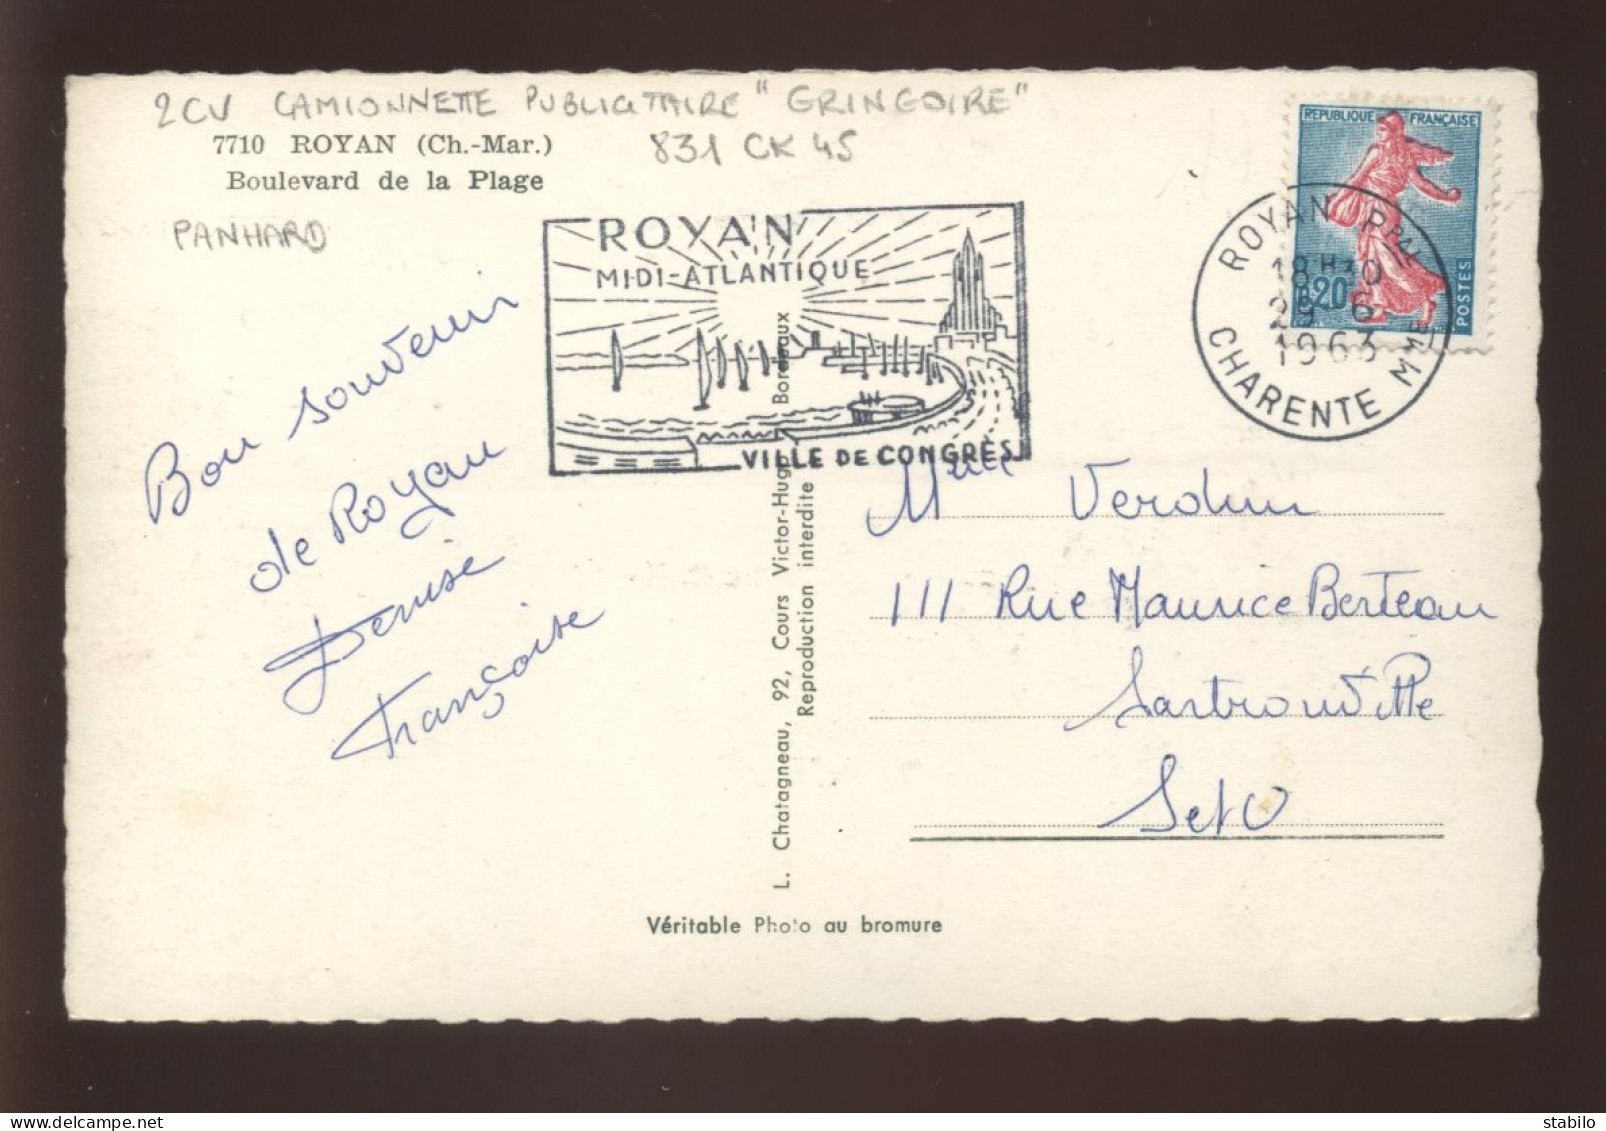 2CV CAMIONNETTE PUBLICITAIRE "GRINGOIRE"
831 CK 45
7710 ROYAN (Ch.-Mar.)
Boulevard de la Plage
PANHARD
ROYAN
MIDI-ATLANTIQUE
VILLE DE CONGRÈS
REPUBLIQUE FRANÇAISE
0,20
POSTES
ROYAN Ppal
18H30
29-6
1963
CHARENTE MME
Bon souvenir
de Royan
Denise
Françoise
L. Chatagneau, 92, Cours Victor-Hugo Bordeaux
Reproduction interdite
Melle Verdun
111 Rue Maurice Berteau
Sartrouville
Set O
Véritable Photo au bromure
delcampe.net
stabilo